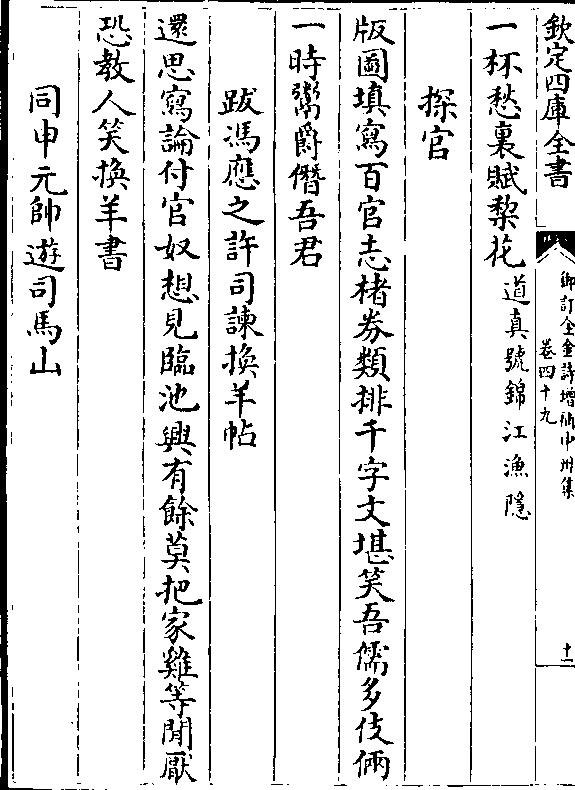 欽定四庫全書
御訂全金詩增補中州集
卷四十九
十二
一杯愁裏賦棃花道真號錦江漁隱
探官
版圖填寫百官志楮券類排千字文堪笑吾儒多伎倆
一時鬻爵僭吾君
跋馮應之許司諫換羊帖
還思寫論付官奴想見臨池興有餘莫把家雞等閒厭
恐教人笑換羊書
同申元帥遊司馬山